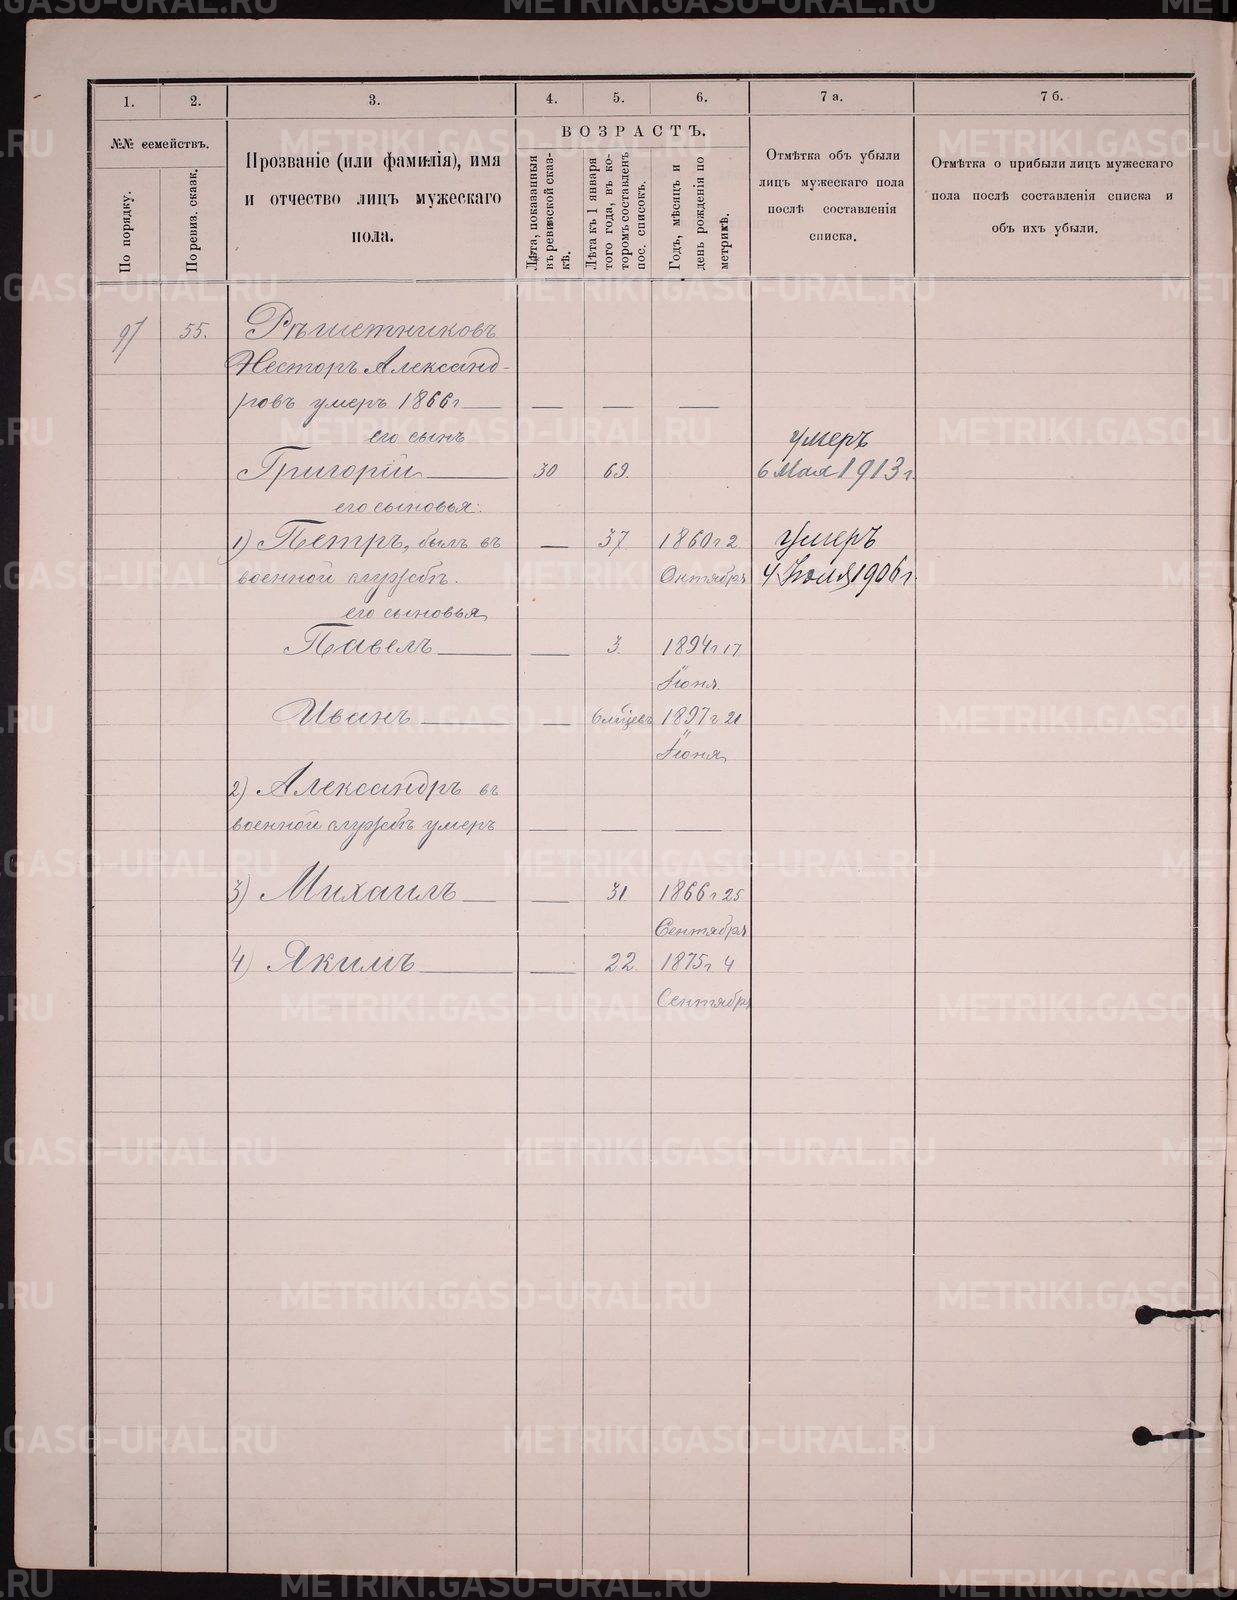 1.
2.
3.
4.
5.
6.
7 а.
7 б.
№№ семействъ.
По порядку.
По ревиз. сказк.
Прозваніе (или фамилія), имя
и отчество лицъ мужескаго
пола.
ВОЗРАСТЪ.
Лѣта, показанныя
въ ревизской сказ-
кѣ.
Лѣта къ 1 января
того года, въ ко-
торомъ составленъ
пос. списокъ.
Годъ, мѣсяцъ и
день рожденія по
метрикѣ.
Отмѣтка объ убыли
лицъ мужескаго пола
послѣ составленія
списка.
Отмѣтка о прибыли лицъ мужескаго
пола послѣ составленія списка и
объ ихъ убыли.
91 55. Рѣшетниковъ
Несторъ Александ-
ровъ умеръ 1866 г — — — —
его сынъ умеръ
Григорій — 30 69. 6 Мая 1913 г.
его сыновья:
1) Петръ, былъ въ — 37 1860 г 2 Умеръ
военной службѣ. Октября 4 Іюля 1906 г.
его сыновья
Павелъ — — 3. 1894 г 17
Іюня.
Иванъ — — 6 м҃цевъ 1897 г. 21
Іюня
2) Александръ въ
военной службѣ умеръ — — —
3) Михаилъ — — 31 1866 г 25
Сентября
4) Якимъ — — 22. 1875 г 4
Сентября
METRIKI.GASO-URAL.RU